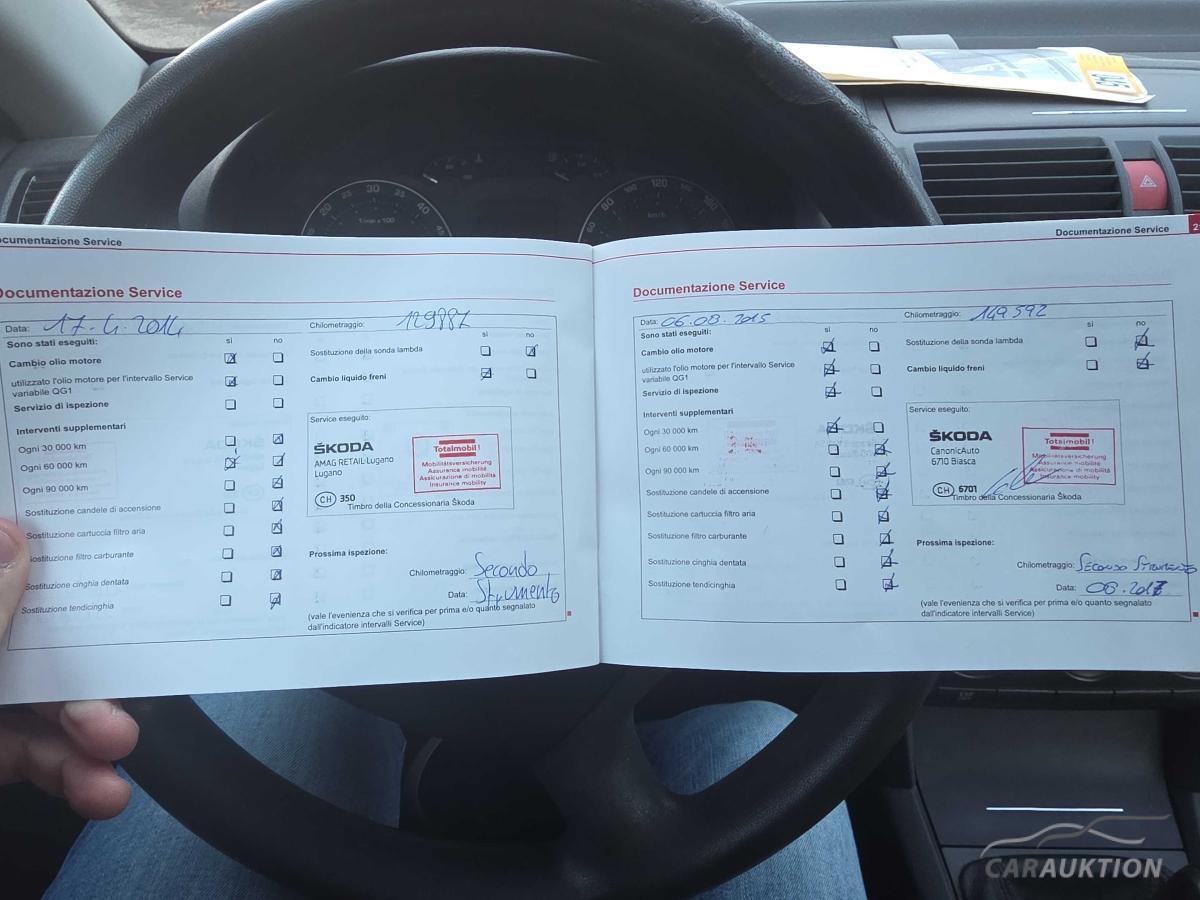 Documentazione Service
Documentazione Service
Data: 17.4.2014
Chilometraggio: 129887
Sono stati eseguiti:
sì no
Cambio olio motore
utilizzato l'olio motore per l'intervallo Service
variabile QG1
Servizio di ispezione
Interventi supplementari:
Ogni 30 000 km
Ogni 60 000 km
Ogni 90 000 km
Sostituzione candele di accensione
Sostituzione cartuccia filtro aria
Sostituzione filtro carburante
Sostituzione cinghia dentata
Sostituzione tendicinghia
sì no
Sostituzione della sonda lambda
Cambio liquido freni
Service eseguito:
ŠKODA
AMAG RETAIL Lugano
Lugano
CH 350
Totalmobil!
Mobilitätsversicherung
Assurance mobilité
Assicurazione di mobilità
Insurance mobility
Timbro della Concessionaria Škoda
Prossima ispezione:
Chilometraggio: Secondo
Data: Strumento
(vale l'evenienza che si verifica per prima e/o quanto segnalato
dall'indicatore intervalli Service)
Documentazione Service 2
Documentazione Service
Data: 06.08.2015
Chilometraggio: 149592
Sono stati eseguiti:
sì no
Cambio olio motore
utilizzato l'olio motore per l'intervallo Service
variabile QG1
Servizio di ispezione
Interventi supplementari
Ogni 30 000 km
Ogni 60 000 km
Ogni 90 000 km
Sostituzione candele di accensione
Sostituzione cartuccia filtro aria
Sostituzione filtro carburante
Sostituzione cinghia dentata
Sostituzione tendicinghia
sì no
Sostituzione della sonda lambda
Cambio liquido freni
Service eseguito:
ŠKODA
CanonicAuto
6710 Biasca
CH 6701
Totalmobil!
Mobilitätsversicherung
Assurance mobilité
Assicurazione di mobilità
Insurance mobility
Timbro della Concessionaria Škoda
Prossima ispezione:
Chilometraggio: Secondo Strumento
Data: 08.2017
(vale l'evenienza che si verifica per prima e/o quanto segnalato
dall'indicatore intervalli Service)
20 25 30 35 40 45
1/min x 100
60 80 100 120 140 160
km/h
CARAUKTION